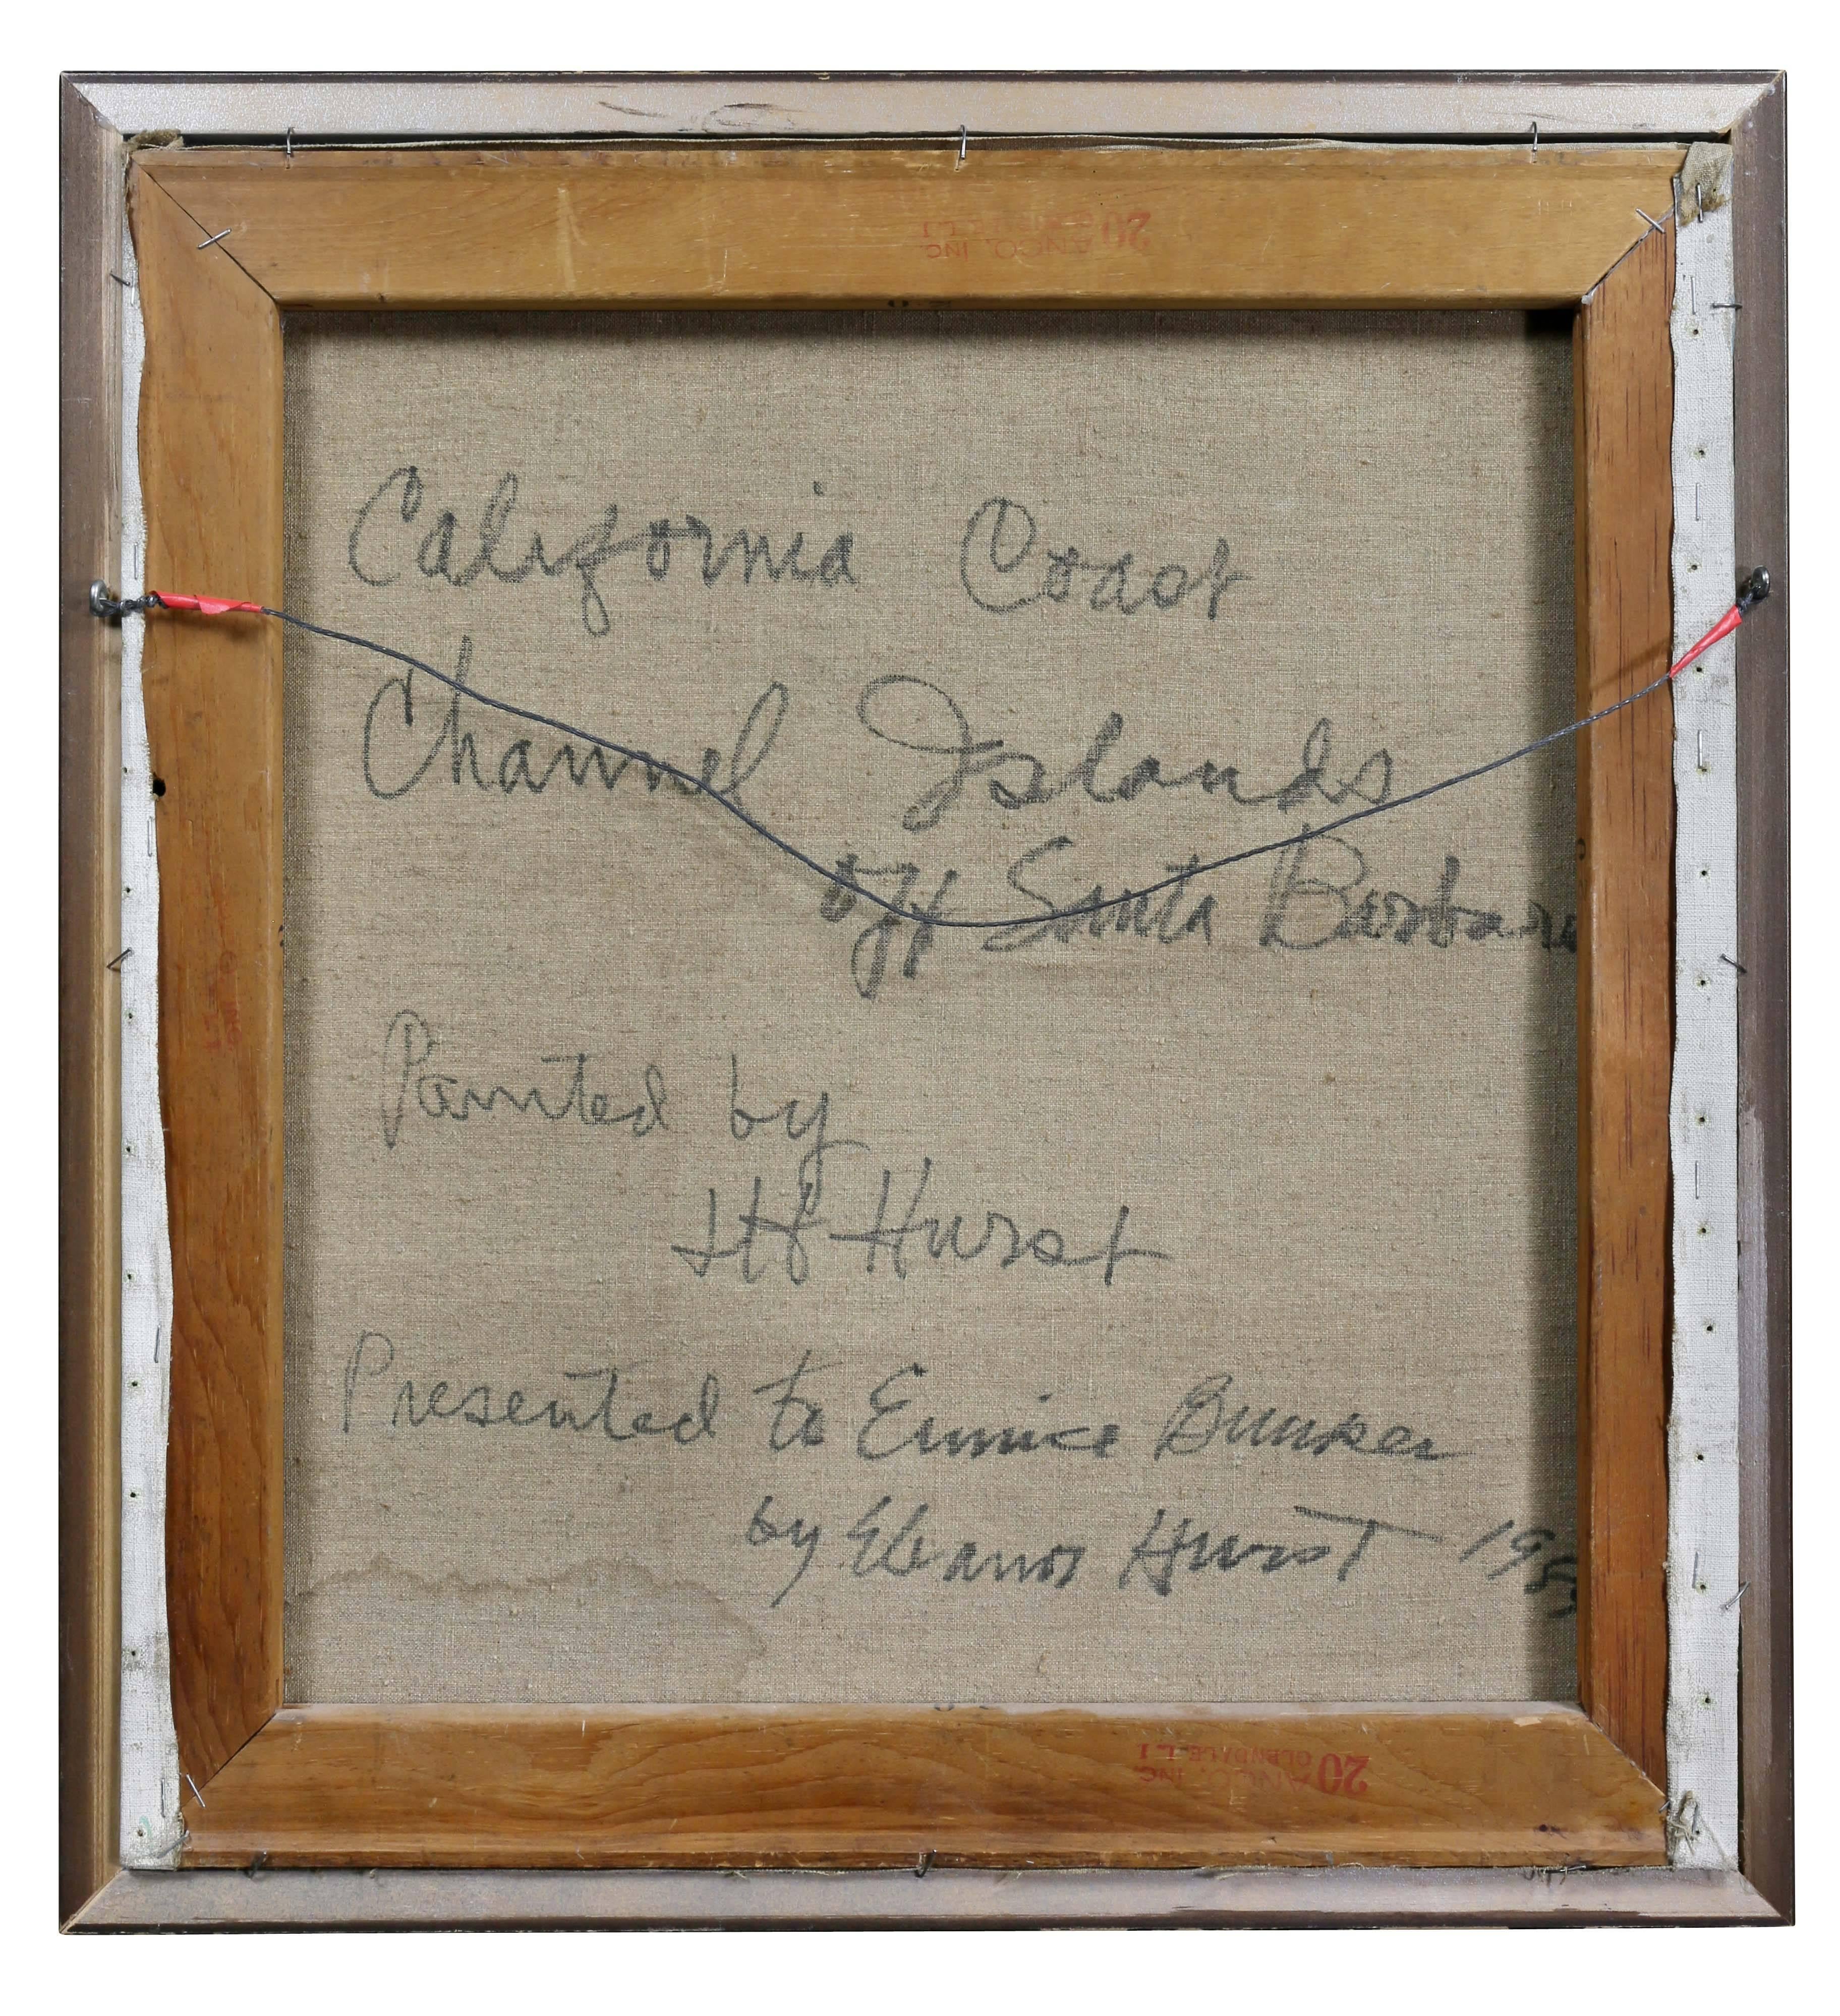 20 ANCO, INC
California Coast
Channel Islands
off Santa Barbara
Painted by
Hurst
Presented to Eunice Bunker
by Eleanor Hurst
20 ANCO, INC
GLENDALE L I